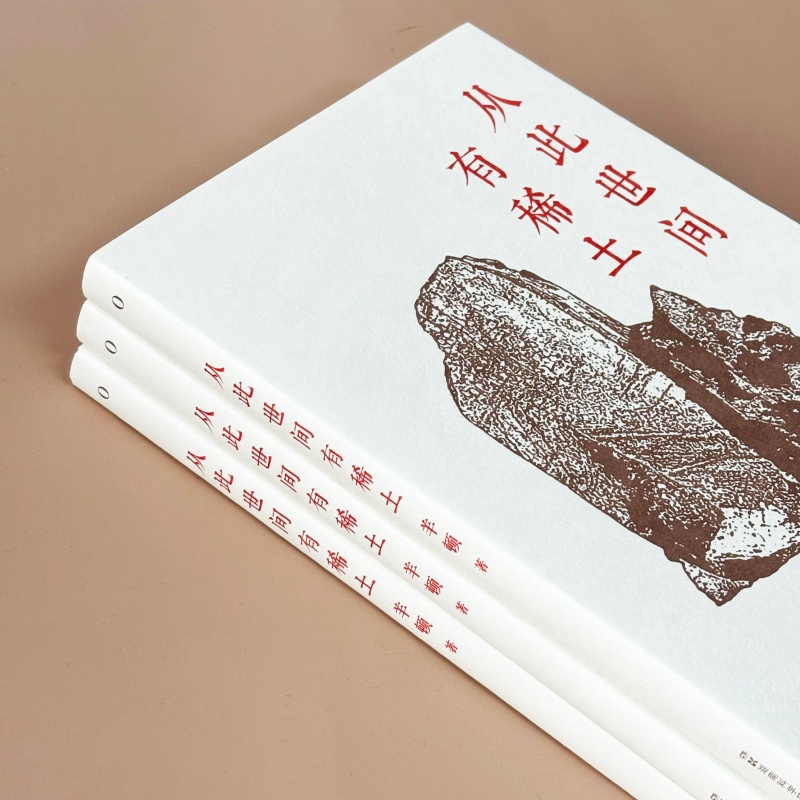 从此世间
有稀土
O
从此世间有稀土 羊顿 著
O
从此世间有稀土 羊顿 著
O
从此世间有稀土 羊顿 著